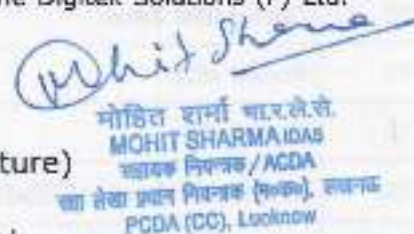 Digitek Solutions (P) Ltd.
Mohit Sharma
मोहित शर्मा भा.र.ले.से.
MOHIT SHARMA IDAS
ture)
सहायक नियन्त्रक/ACDA
रक्षा लेखा प्रधान नियन्त्रक (म०क०), लखनऊ
PCDA (CC), Lucknow